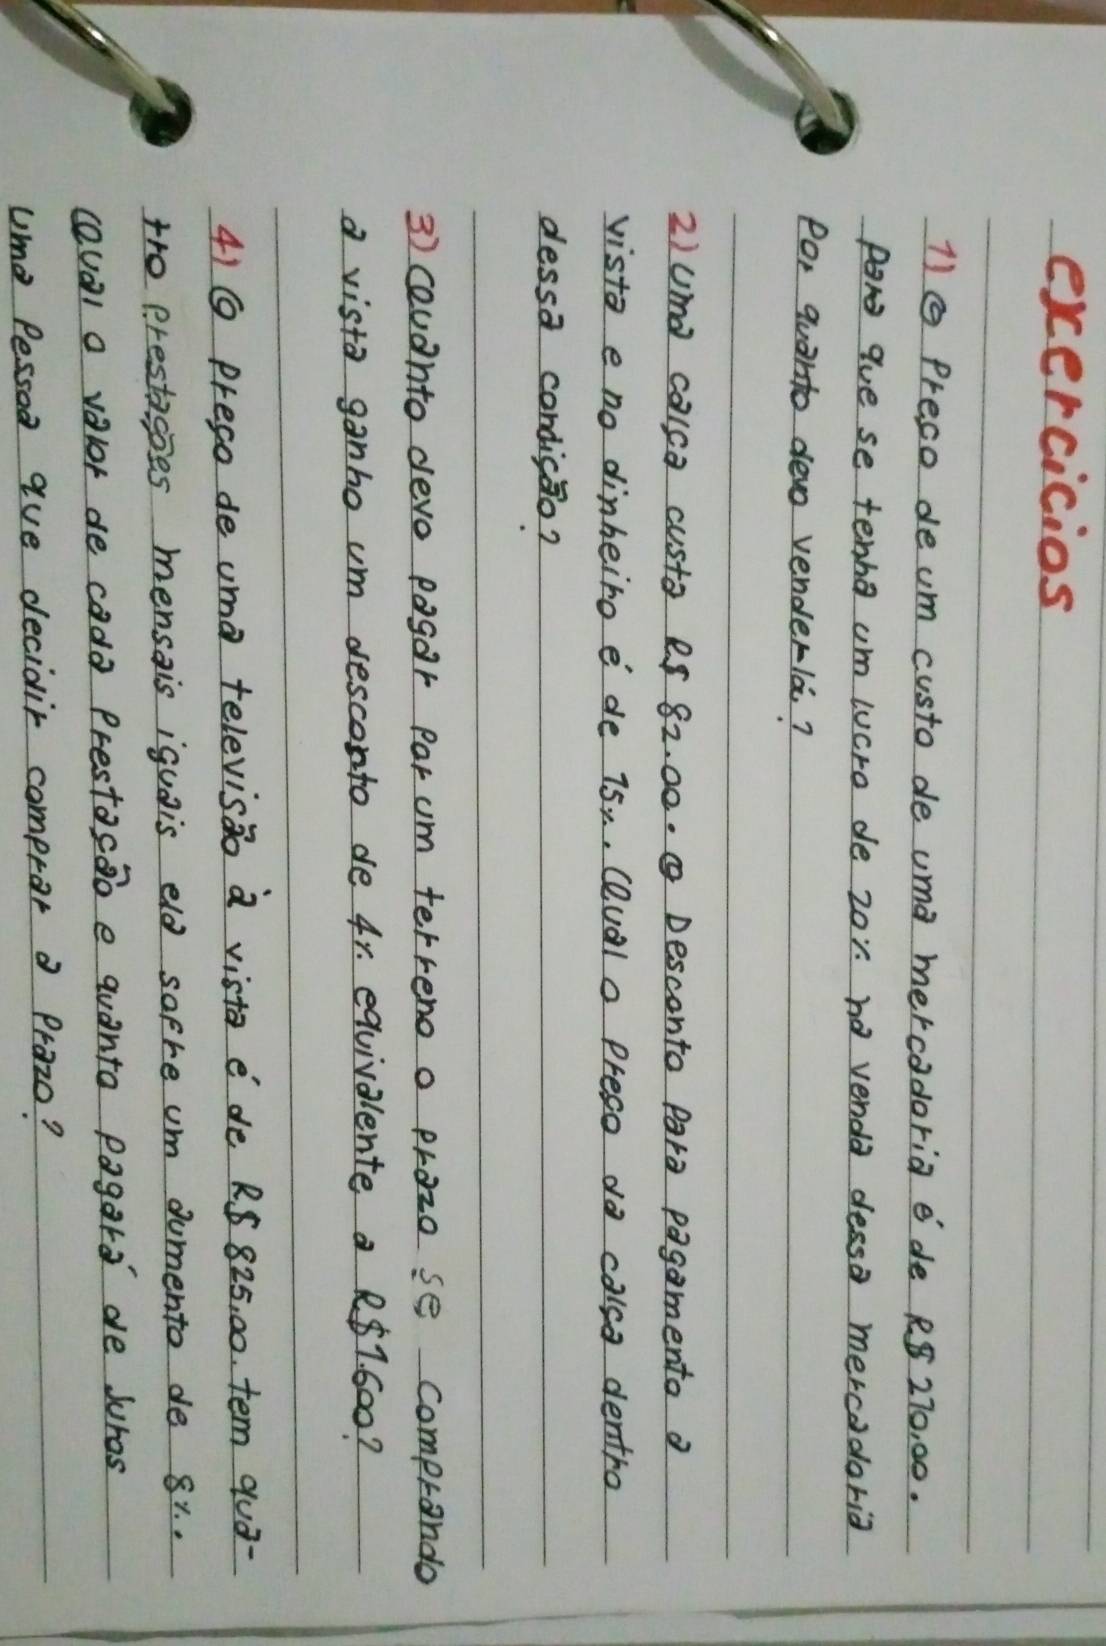 exercicios
1) O Preço de um custo de uma mercadoria é de R$ 270,00.
para que se tenha um lucro de 20% na venda dessa mercadoria
Por quanto devo vender-lá.?
2) uma calça custa R$ 82.00. O Desconto Para pagamento a
vista e no dinheiro é de 15%. Qual o preço da calça dentro
dessa condição?
3) Quanto devo pagar por um terreno o prazo se comprando
a vista ganho um desconto de 4% equivalente a R$1.600?
4) O preço de uma televisão à vista é de R$ 825,00. tem qua-
tro prestações mensais iguais ela sofre um aumento de 8%.
Qual o valor de cada Prestação e quanto pagará de Juros
uma Pessoa que decidir comprar a Prazo?